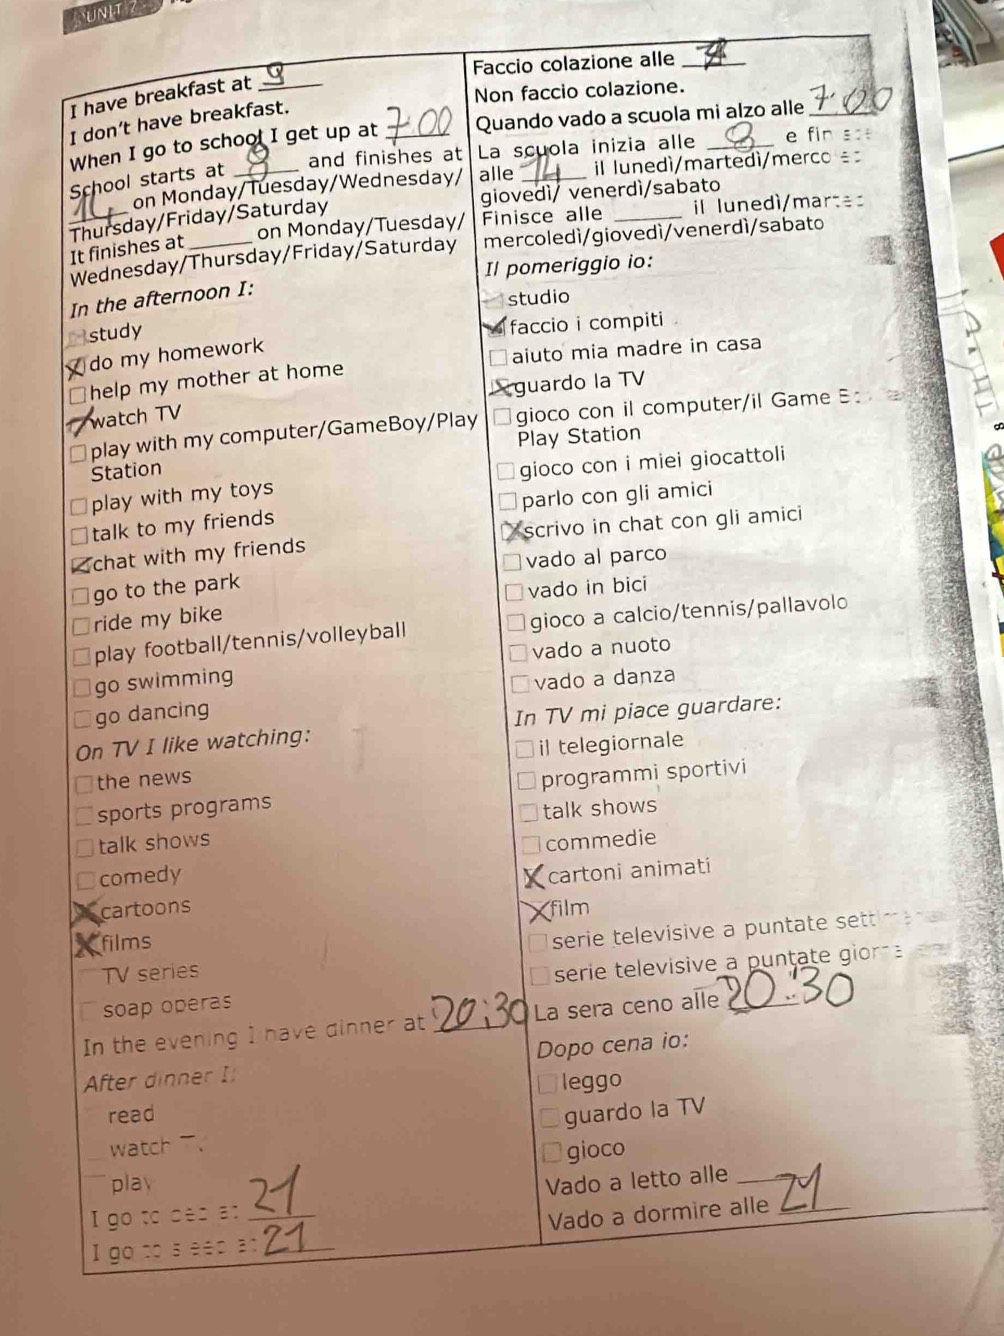 UNIT 2
I have breakfast at
I don't have breakfast.
When I go to school I get up at 7:00
School starts at 8 and finishes at
14 on Monday/Tuesday/Wednesday/
Thursday/Friday/Saturday
It finishes at ______ on Monday/Tuesday/
Wednesday/Thursday/Friday/Saturday
In the afternoon I:
study
do my homework
help my mother at home
watch TV
play with my computer/GameBoy/Play
Station
play with my toys
talk to my friends
chat with my friends
go to the park
ride my bike
play football/tennis/volleyball
go swimming
go dancing
On TV I like watching:
the news
sports programs
talk shows
comedy
cartoons
films
TV series
soap operas
In the evening I have dinner at 20:30
After dinner I:
read
watch
play
I go to bed at 21
I go to sleep at 21
Faccio colazione alle
Non faccio colazione.
Quando vado a scuola mi alzo alle 7:00
La scuola inizia alle 8 e
alle 14 il lunedì/martedì/merco
giovedì/ venerdì/sabato
Finisce alle ______ il lunedì/mar
mercoledì/giovedì/venerdì/sabato
Il pomeriggio io:
studio
faccio i compiti
aiuto mia madre in casa
guardo la TV
gioco con il computer/il Game
Play Station
gioco con i miei giocattoli
parlo con gli amici
scrivo in chat con gli amici
vado al parco
vado in bici
gioco a calcio/tennis/pallavolo
vado a nuoto
vado a danza
In TV mi piace guardare:
il telegiornale
programmi sportivi
talk shows
commedie
cartoni animati
film
serie televisive a puntate
serie televisive a puntate
La sera ceno alle 20:30
Dopo cena io:
leggo
guardo la TV
gioco
Vado a letto alle ______
Vado a dormire alle 21